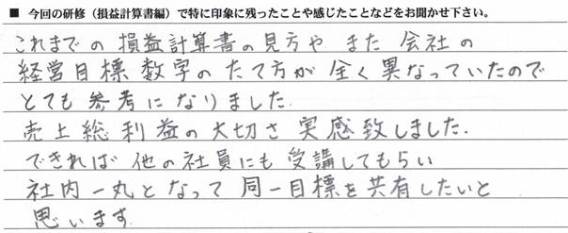 ■ 今回の研修（損益計算書編）で特に印象に残ったことや感じたことなどをお聞かせ下さい。
これまでの 損益計算書の見方や また 会社の
経営目標 数字の たて方が 全く異なっていたので
とても 参考に なりました.
売上総利益の大切さ 実感致しました.
できれば 他の社員にも 受講してもらい
社内一丸となって 同一目標を共有したいと
思います.